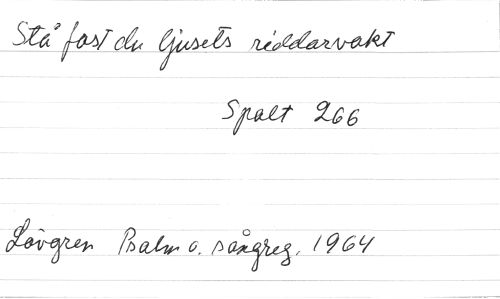 Stå fast du ljusets riddarvakt
Spalt 266
Lövgren Psalm o. sångreg. 1964